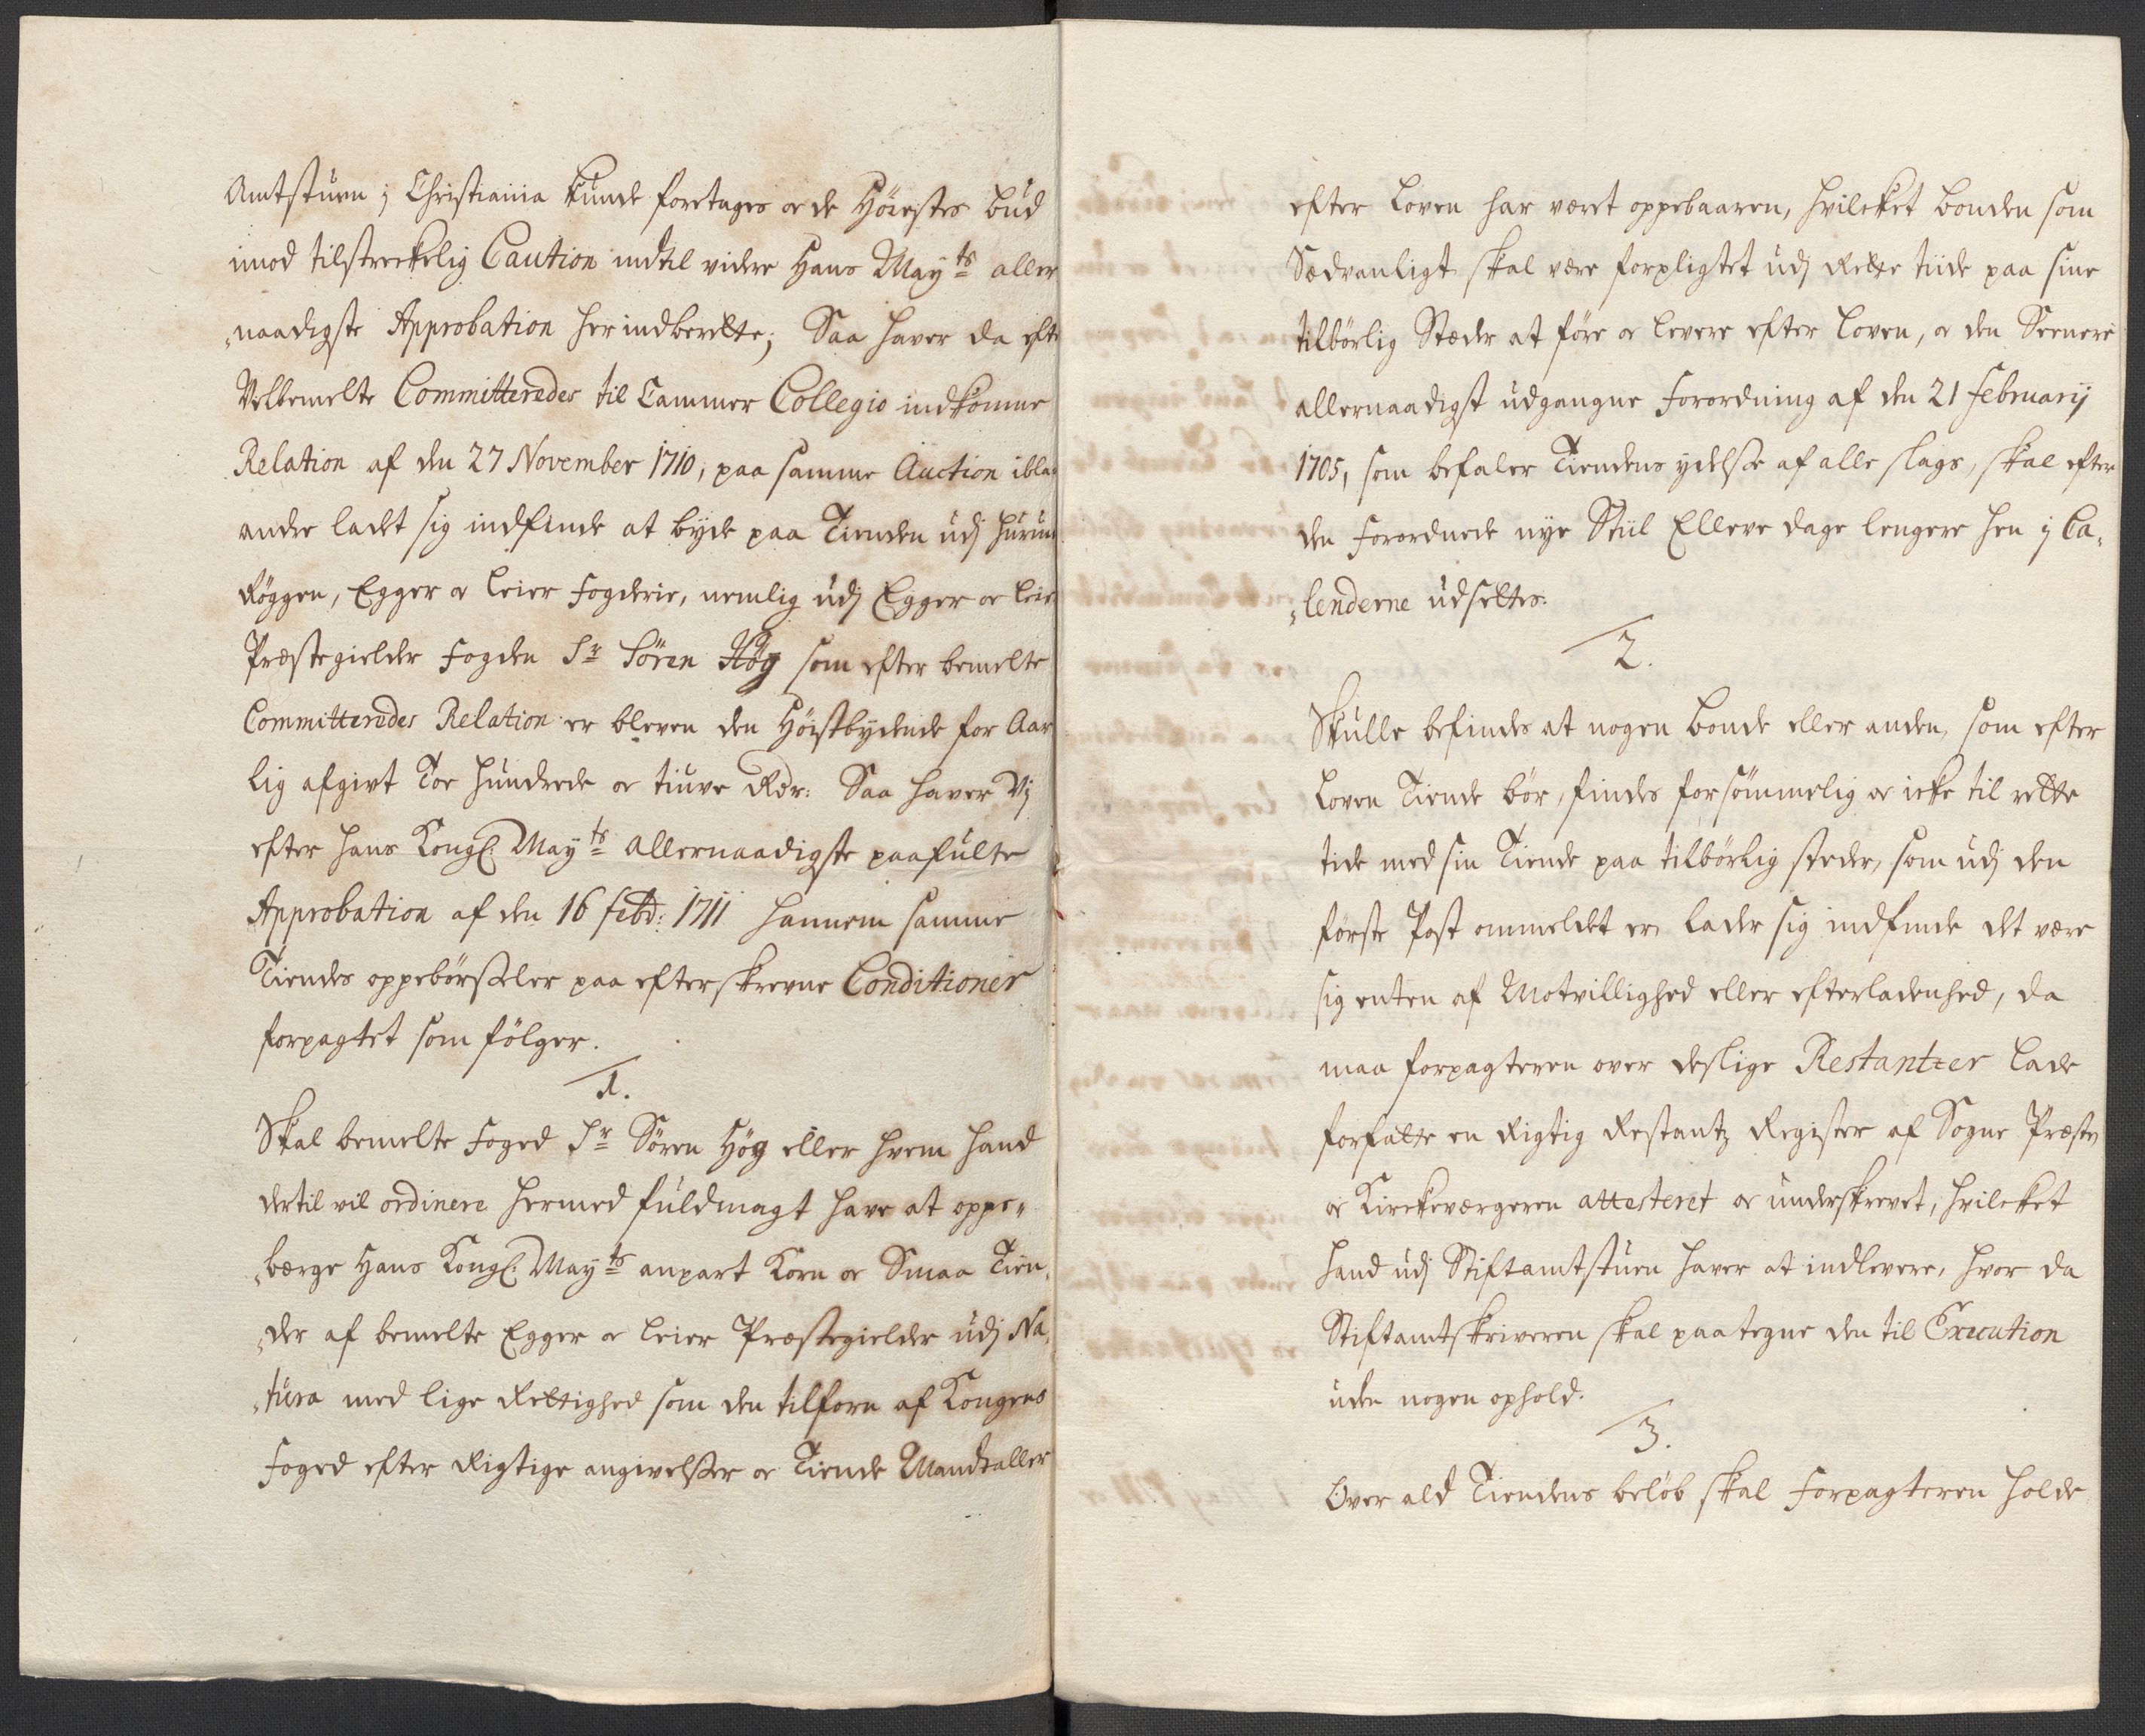 Amtstuen j Christiania kunde foretages oc de Höiestes bud
imod tilstreckelig Caution indtil videre Hans Mayts aller
„naadigste Approbation her indberette; Saa haver da efter
Velbemelte Committeredes til Cammer Collegio indkomne
Relation af den 27 November 1710, paa samme Auction iblant
andre ladet sig indfinde at byde paa Tienden udj Hurum
Röggen, Egger oc Leier fogderie, nemlig udj Egger oc Leier
Præstegielder Fogden Sr Sören Høg som efter bemelte
Committeredes Relation er bleven den Höistbydende for Aar
lig afgivt Toe Hundrede oc tiuve Rdr: Saa haver Vj
efter Hans Kongl: Mayts allernaadigste paafulte
Approbation af den 16 febr: 1711 hannem samme
Tiendes oppebörsseler paa efterskrevne Conditioner
forpagtet som fölger.
1.
Skal bemelte Foged Sr Sören Høg eller hvem hand
dertil vil ordinere hermed fuldmagt have at oppe„
„berge Hans Kongl: Mayts anpart Korn oc Smaa Tien„
„der af bemelte Egger oc Leier Præstegielder udj Na„
„tura med lige Rettighed som den tilforn af Kongens
Foged efter Rigtige angivelsser oc Tiende Mandtaller
efter Loven har været oppebaaren, hvilcket bonden som
Sædvanligt skal være forpligtet udj Rette tiide paa sine
tilbörlig Stæder at före oc levere efter Loven, oc den Seenere
allernaadigst udgangne Forordning af den 21 Februarij
1705, som befaler Tiendens ydelsse af alle slags, skal efter
den Forordnede nye Stiil Elleve dage lengere hen j Ca„
„lenderne udsettes.
2.
Skulle befindes at nogen bonde eller anden, som efter
Loven Tiende bör, findes forsömmelig oc icke til rette
tide med sin Tiende paa tilbörlig steder, som udj den
förste Post ommeldet er, lader sig indfinde det være
sig enten af Motvillighed eller efterladenhed, da
maa forpagteren over deslige Restantzer lade
forfatte en Rigtig Restantz Register af Sogne Præsten
oc Kirckeværgeren attesteret oc underskrevet, hvilcket
hand udj Stiftamtstuen haver at indlevere, hvor da
Stiftamtskriveren skal paategne den til Execution
uden nogen ophold.
3.
Over ald Tiendens belöb skal Forpagteren holde